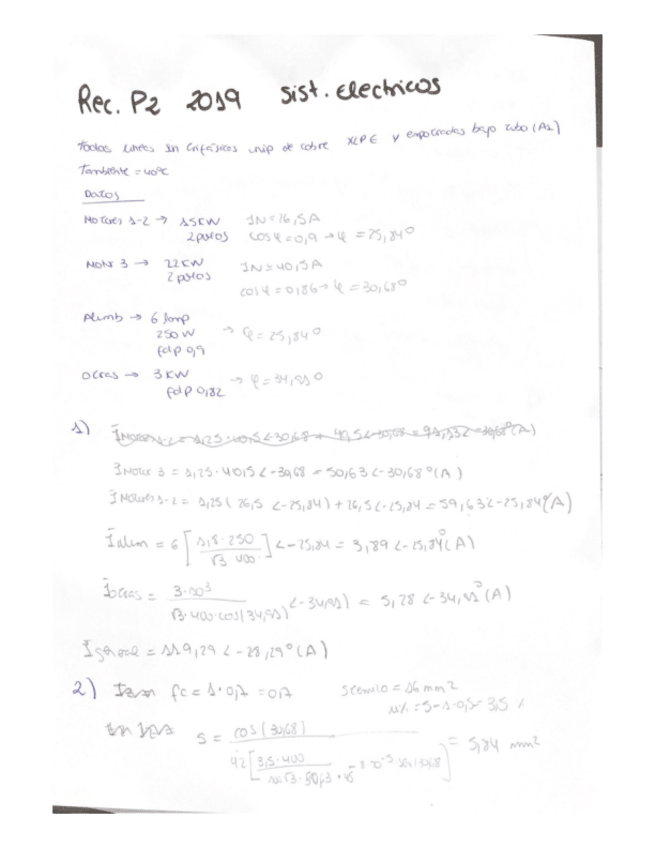 Rec. P2 2019 sist. electricos
Todas lineas son trifásicas unip de cobre XLPE y empotradas bajo tubo (A1)
Tambiente = 40ºC
Datos
Motores 1-2 → 15KW IN = 26,5A
2 polos cosφ = 0,9 → φ = 25,84º
Motor 3 → 22KW IN = 40,5A
2 polos cosφ = 0,86 → φ = 30,68º
Alumb → 6 lamp
250W → φ = 25,84º
fdp 0,9
Otras → 3 KW → φ = 34,91º
fdp 0,82
1)
I Motor 3 = 1,25 · 40,5 ∠-30,68 = 50,63 ∠-30,68º (A)
I Motores 1-2 = 1,25 ( 26,5 ∠-25,84) + 26,5 ∠-25,84 = 59,63 ∠-25,84º (A)
I alum = 6 [ 1,8 · 250 / √3 · 400 ] ∠-25,84 = 3,89 ∠-25,84º (A)
I otras = 3 · 10³ / √3 · 400 · cos(34,91) ∠-34,91) = 5,28 ∠-34,91º (A)
I general = 119,29 ∠-28,29º (A)
2) fc = 1 · 0,7 = 0,7 = 16 mm²
= 5 - 1 - 0,5 = 3,5 %
S = cos (30,68) / 42 [ 3,5 · 400 / √3 · 50,63 · ] = 5,84 mm²